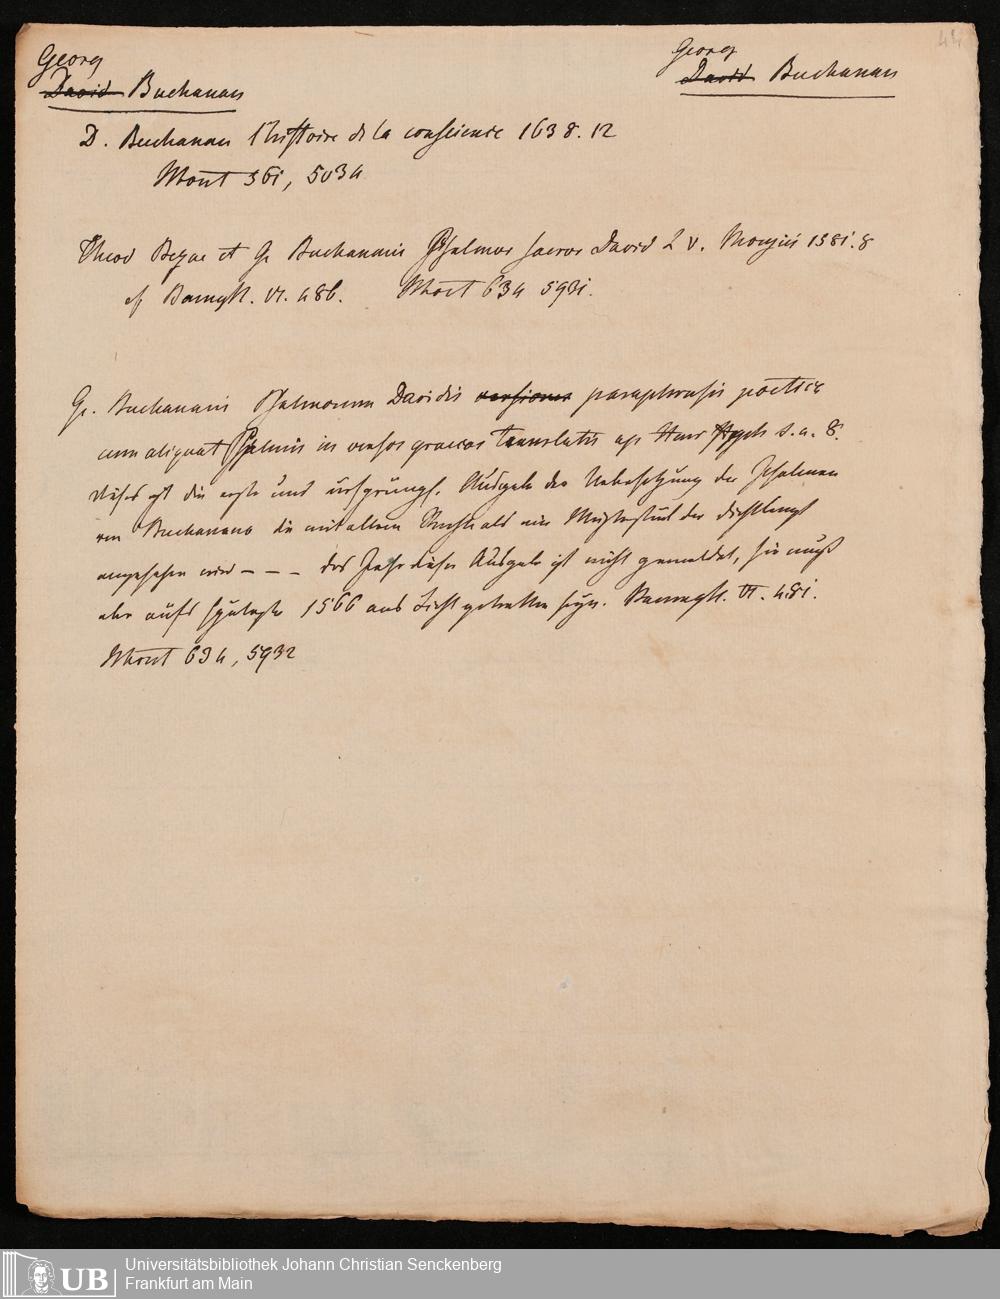 Georg
David Buchanan
Georg
David Buchanan
44
D. Buchanan l'histoire de la conscience 1638. 12
Mont 361, 5034
Theod Bezae et G Buchanani Psalmor sacror David L V. Morgiis 1581. 8
cf Baumgt. VI. 486. Mont 634 5931.
G. Buchanani Psalmorum Davidis versiones paraphrasis poetica
cum aliquot Psalmis in versos graecos translatis ap Henr Steph s. a. 8.
dieses ist die erste und ursprüngl. Ausgabe der Uebersetzung der Psalmen
von Buchanano die mit allem Rechte als ein Meisterstück der Dichtkunst
angesehen wird - - - das Jahr dieser Ausgabe ist nicht gemeldet, sie muß
aber aufs späteste 1566 ans Licht getretten seyn. Baumgt. VI. 481.
Mont 634, 5932
UB
Universitätsbibliothek Johann Christian Senckenberg
Frankfurt am Main